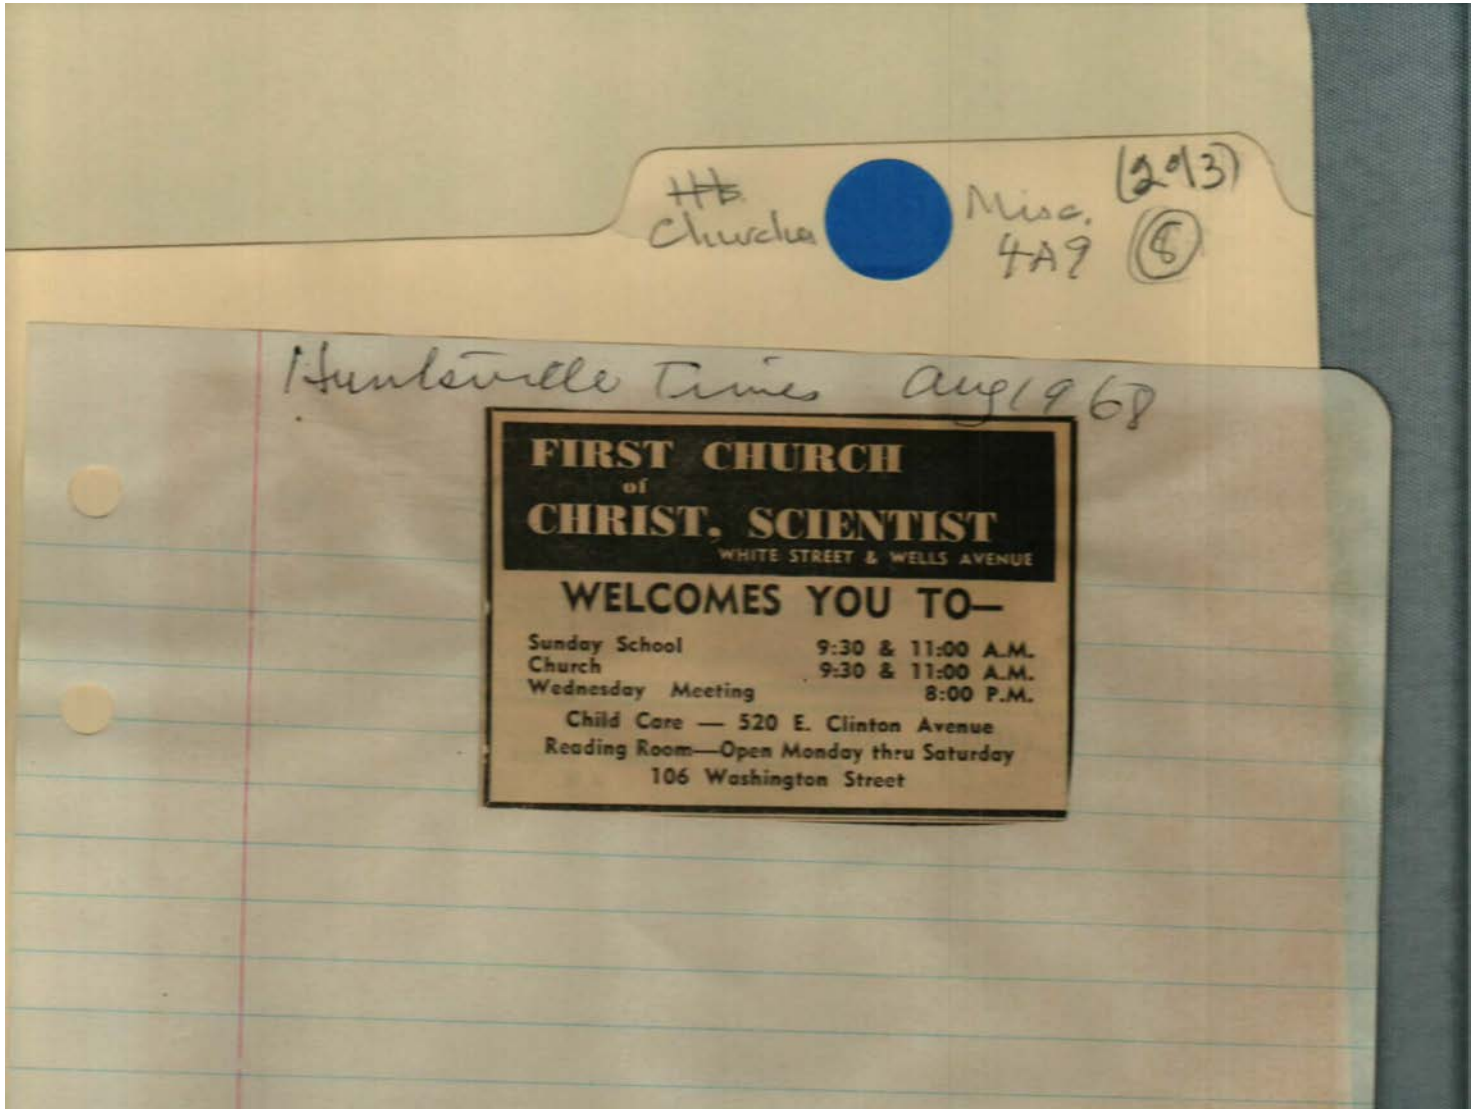 Misc. (2 of 3)
Churches 4A9 8
Huntsville Times Aug 1968
FIRST CHURCH
of
CHRIST, SCIENTIST
WHITE STREET & WELLS AVENUE
WELCOMES YOU TO—
Sunday School 9:30 & 11:00 A.M.
Church 9:30 & 11:00 A.M.
Wednesday Meeting 8:00 P.M.
Child Care — 520 E. Clinton Avenue
Reading Room—Open Monday thru Saturday
106 Washington Street